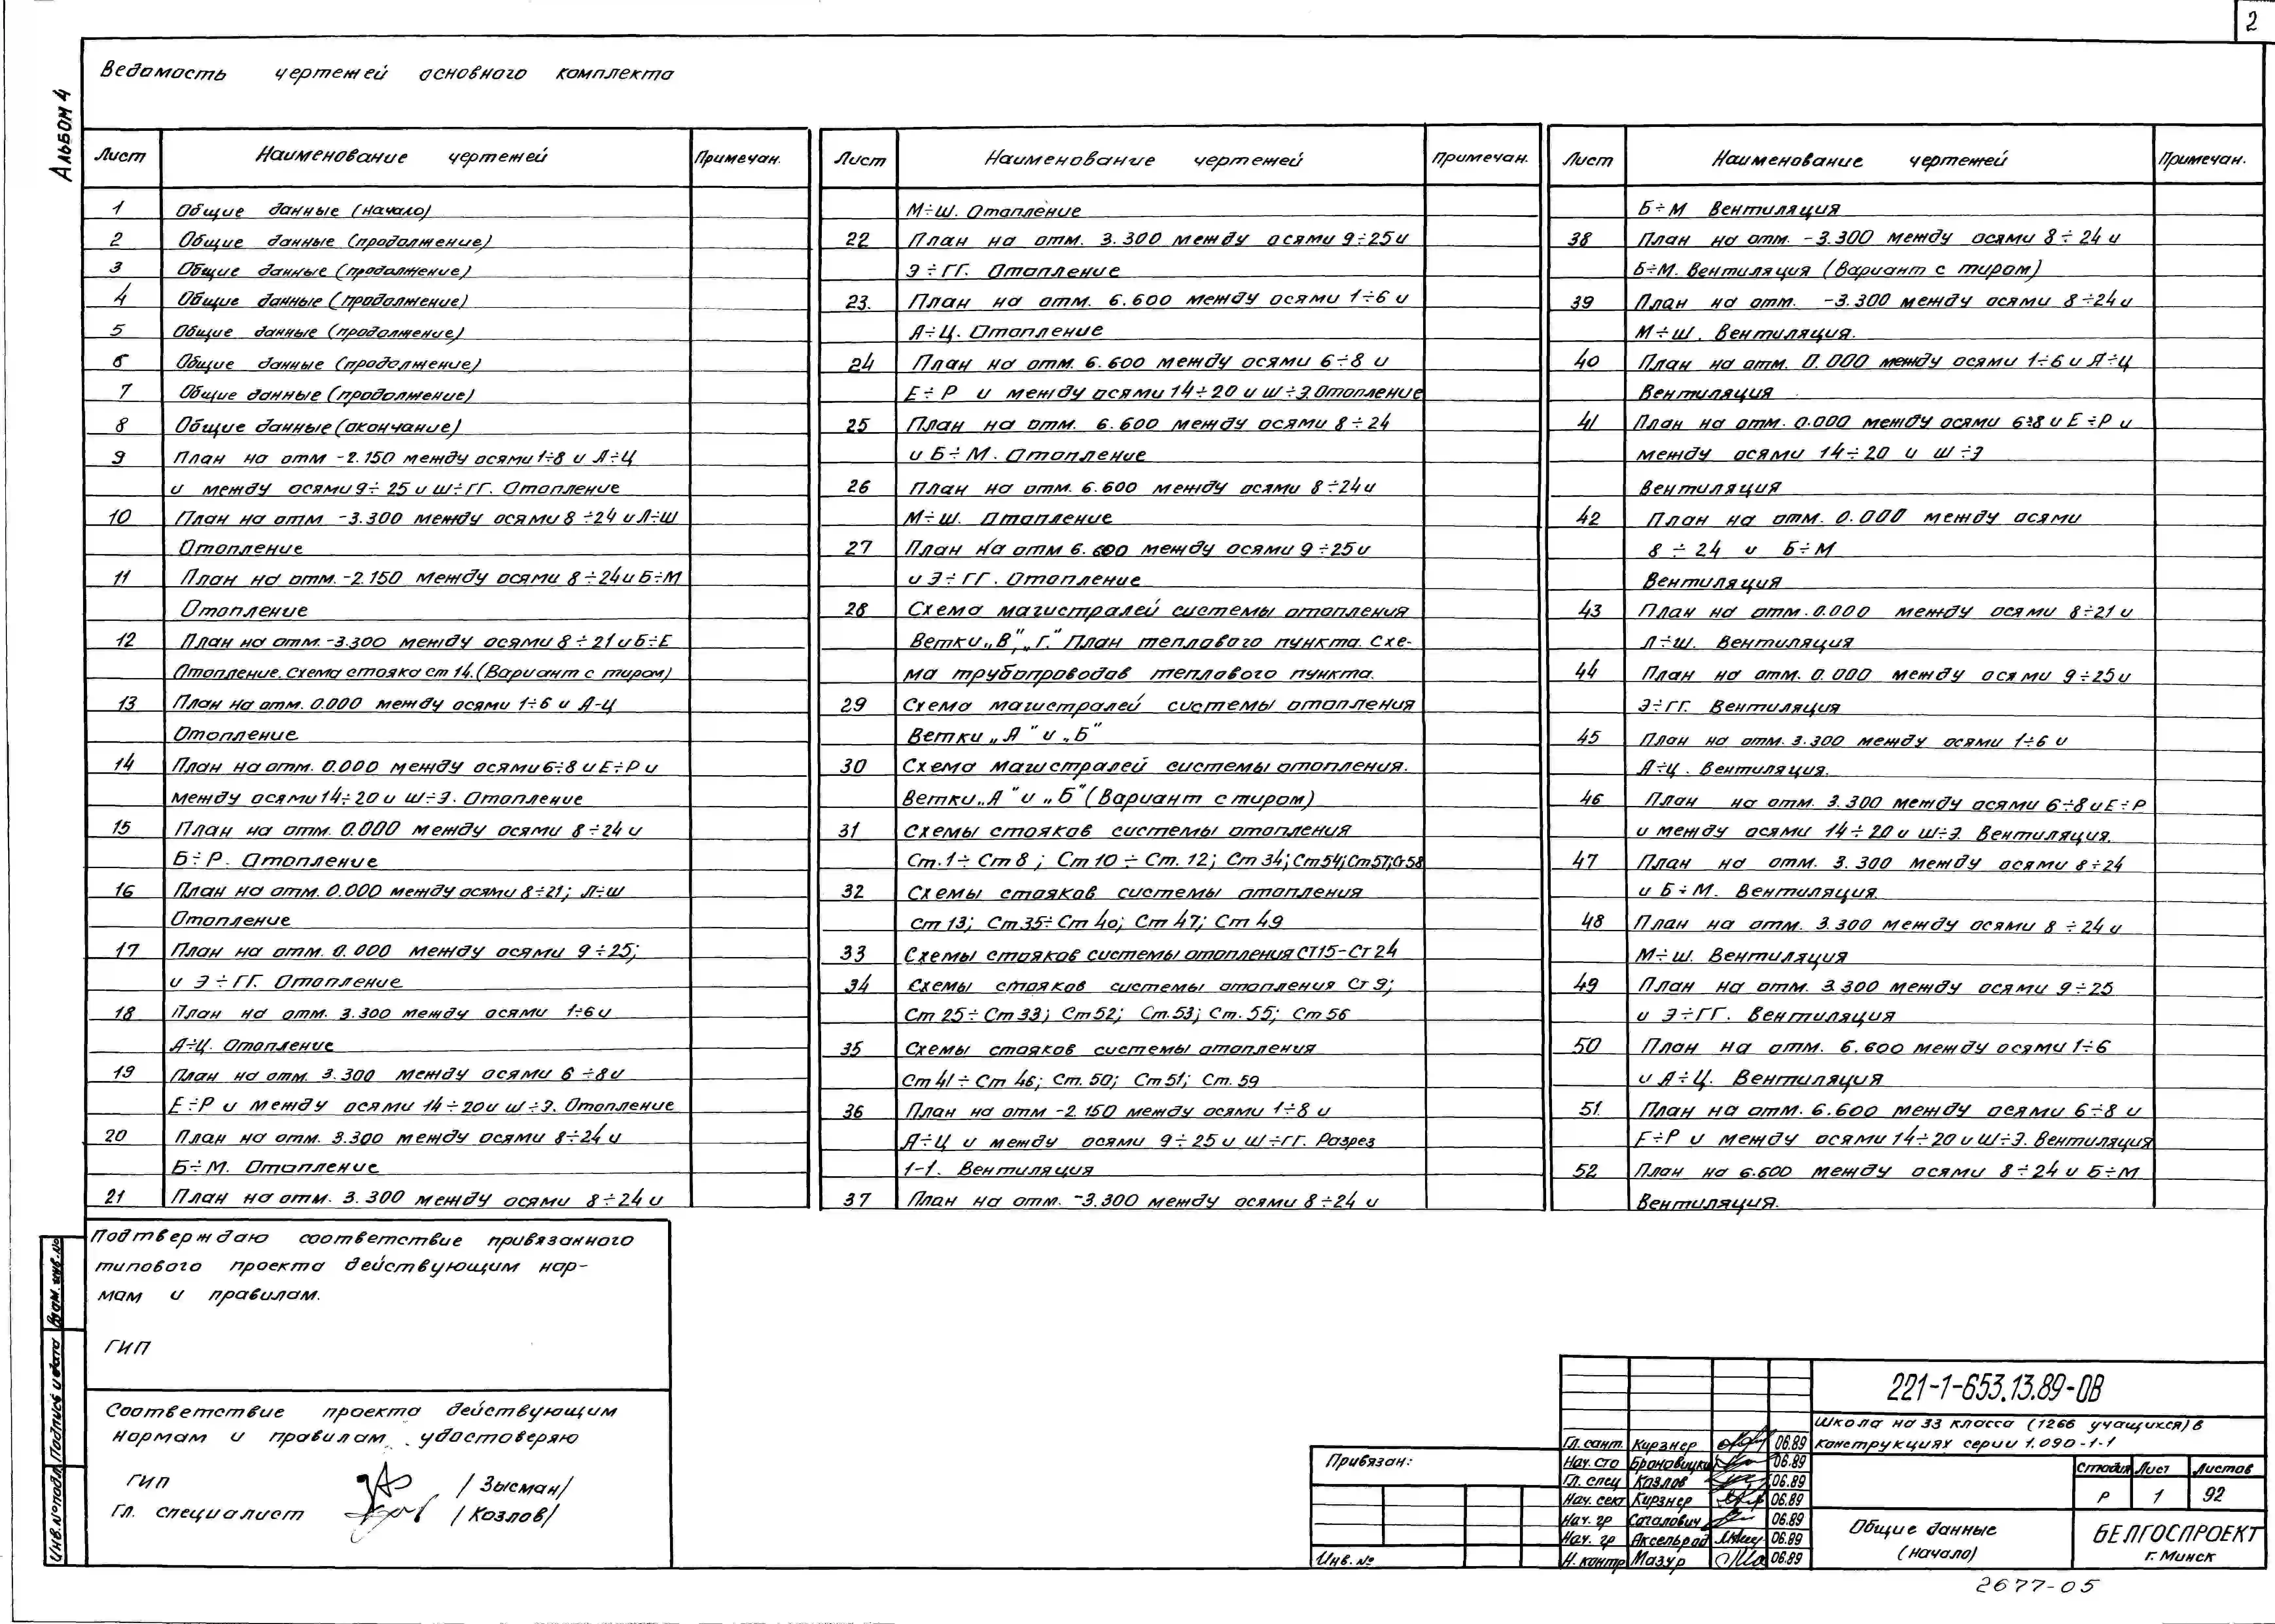 2
Альбом 4
Ведомость чертежей основного комплекта
Лист Наименование чертежей Примечан.
1 Общие данные (начало)
2 Общие данные (продолжение)
3 Общие данные (продолжение)
4 Общие данные (продолжение)
5 Общие данные (продолжение)
6 Общие данные (продолжение)
7 Общие данные (продолжение)
8 Общие данные (окончание)
9 План на отм -2.150 между осями 1÷8 и Л÷Ц
и между осями 9÷25 и Ш÷ГГ. Отопление
10 План на отм -3.300 между осями 8÷24 и Л÷Ш
Отопление
11 План на отм. -2.150 между осями 8÷24 и Б÷М
Отопление
12 План на отм. -3.300 между осями 8÷21 и Б÷Е
Отопление. Схема стояка ст 14. (Вариант с тиром)
13 План на отм. 0.000 между осями 1÷6 и А-Ц
Отопление
14 План на отм. 0.000 между осями 6÷8 и Е÷Р и
между осями 14÷20 и Ш÷Э. Отопление
15 План на отм. 0.000 между осями 8÷24 и
Б÷Р. Отопление
16 План на отм. 0.000 между осями 8÷21; Л÷Ш
Отопление
17 План на отм. 0.000 между осями 9÷25;
и Э÷ГГ. Отопление
18 План на отм. 3.300 между осями 1÷6 и
А÷Ц. Отопление
19 План на отм. 3.300 между осями 6÷8 и
Е÷Р и между осями 14÷20 и Ш÷Э. Отопление
20 План на отм. 3.300 между осями 8÷24 и
Б÷М. Отопление
21 План на отм. 3.300 между осями 8÷24 и
Лист Наименование чертежей Примечан.
М÷Ш. Отопление
22 План на отм. 3.300 между осями 9÷25 и
Э÷ГГ. Отопление
23. План на отм. 6.600 между осями 1÷6 и
А÷Ц. Отопление
24 План на отм. 6.600 между осями 6÷8 и
Е÷Р и между осями 14÷20 и Ш÷Э. Отопление
25 План на отм. 6.600 между осями 8÷24
и Б÷М. Отопление
26 План на отм. 6.600 между осями 8÷24 и
М÷Ш. Отопление
27 План на отм 6.600 между осями 9÷25 и
и Э÷ГГ. Отопление
28 Схема магистралей системы отопления
Ветки „В", „Г." План теплового пункта. Схе-
ма трубопроводов теплового пункта.
29 Схема магистралей системы отопления
Ветки „А" и „Б"
30 Схема магистралей системы отопления.
Ветки „А" и „Б" (Вариант с тиром)
31 Схемы стояков системы отопления
Ст.1÷Ст 8; Ст 10÷Ст. 12; Ст 34; Ст 54; Ст 57; Ст 58
32 Схемы стояков системы отопления
Ст 13; Ст 35÷Ст 40; Ст 47; Ст 49
33 Схемы стояков системы отопления Ст15-Ст24
34 Схемы стояков системы отопления Ст 9;
Ст 25÷Ст 33; Ст 52; Ст.53; Ст. 55; Ст 56
35 Схемы стояков системы отопления
Ст 41÷Ст 46; Ст. 50; Ст 51; Ст. 59
36 План на отм -2.150 между осями 1÷8 и
А÷Ц и между осями 9÷25 и Ш÷ГГ. Разрез
1-1. Вентиляция
37 План на отм. -3.300 между осями 8÷24 и
Лист Наименование чертежей Примечан.
Б÷М Вентиляция
38 План на отм. -3.300 между осями 8÷24 и
Б÷М. Вентиляция (Вариант с тиром)
39 План на отм. -3.300 между осями 8÷24 и
М÷Ш. Вентиляция.
40 План на отм. 0.000 между осями 1÷6 и А÷Ц
Вентиляция
41 План на отм. 0.000 между осями 6÷8 и Е÷Р и
между осями 14÷20 и Ш÷Э
Вентиляция
42 План на отм. 0.000 между осями
8÷24 и Б÷М
Вентиляция
43 План на отм. 0.000 между осями 8÷21 и
Л÷Ш. Вентиляция
44 План на отм. 0.000 между осями 9÷25 и
Э÷ГГ. Вентиляция
45 План на отм. 3.300 между осями 1÷6 и
А÷Ц. Вентиляция.
46 План на отм. 3.300 между осями 6÷8 и Е÷Р
и между осями 14÷20 и Ш÷Э. Вентиляция.
47 План на отм. 3.300 между осями 8÷24
и Б÷М. Вентиляция
48 План на отм. 3.300 между осями 8÷24 и
М÷Ш. Вентиляция
49 План на отм. 3.300 между осями 9÷25
и Э÷ГГ. Вентиляция
50 План на отм. 6.600 между осями 1÷6
и А÷Ц. Вентиляция
51. План на отм. 6.600 между осями 6÷8 и
Е÷Р и между осями 14÷20 и Ш÷Э. Вентиляция
52 План на 6.600 между осями 8÷24 и Б÷М
Вентиляция.
Подтверждаю соответствие привязанного
типового проекта действующим нор-
мам и правилам.
ГИП
Соответствие проекта действующим
нормам и правилам удостоверяю
ГИП /Зысман/
Гл. специалист /Козлов/
Инв.№ подл. Подпись и дата Взам. инв.№
Привязан:
Инв. №
Гл. сант. Кирзнер 06.89
Нач. сто Броновицки 06.89
Гл. спец Козлов 06.89
Нач. сект Кирзнер 06.89
Нач. гр Согалович 06.89
Нач. гр Аксельрод 06.89
Н. контр Мазур 06.89
221-1-653.13.89-ОВ
Школа на 33 класса (1266 учащихся) в
конструкциях серии 1.090-1-1
Стадия Лист Листов
Р 1 92
Общие данные
(начало)
БЕЛГОСПРОЕКТ
г. Минск
2677-05